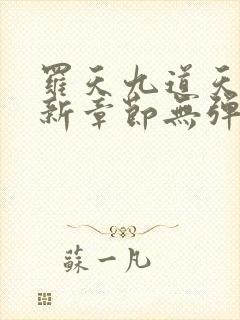 羅天九道天
新章節無彈
蘇一凡